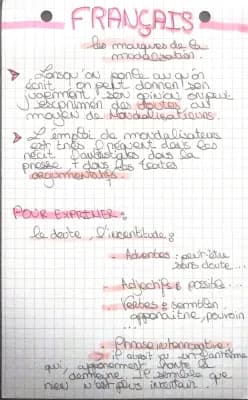 FRANÇAIS
les marques de la
modalisation.
Lorsqu'on parle ou qu'on
écrit, on peut donner son
jugement, son opinion, on peut
exprimer des doutes, au
moyen de Modalisateurs.
L'emploi de modalisateurs
est très fréquent dans les
récit fantastiques, dans la
presse, dans les textes
argumentatifs.
POUR EXPRIMER :
le doute, l'incertitude :
Adverbes : peut-être
sans doute...
Adjectifs : possible...
Verbes : sembler,
apparaître, pouvoir
...
Phrase interrogative :
il y avait un fantôme
qui, apparemment, hante la
demeure. Il semble que
rien n'est plus incertain...